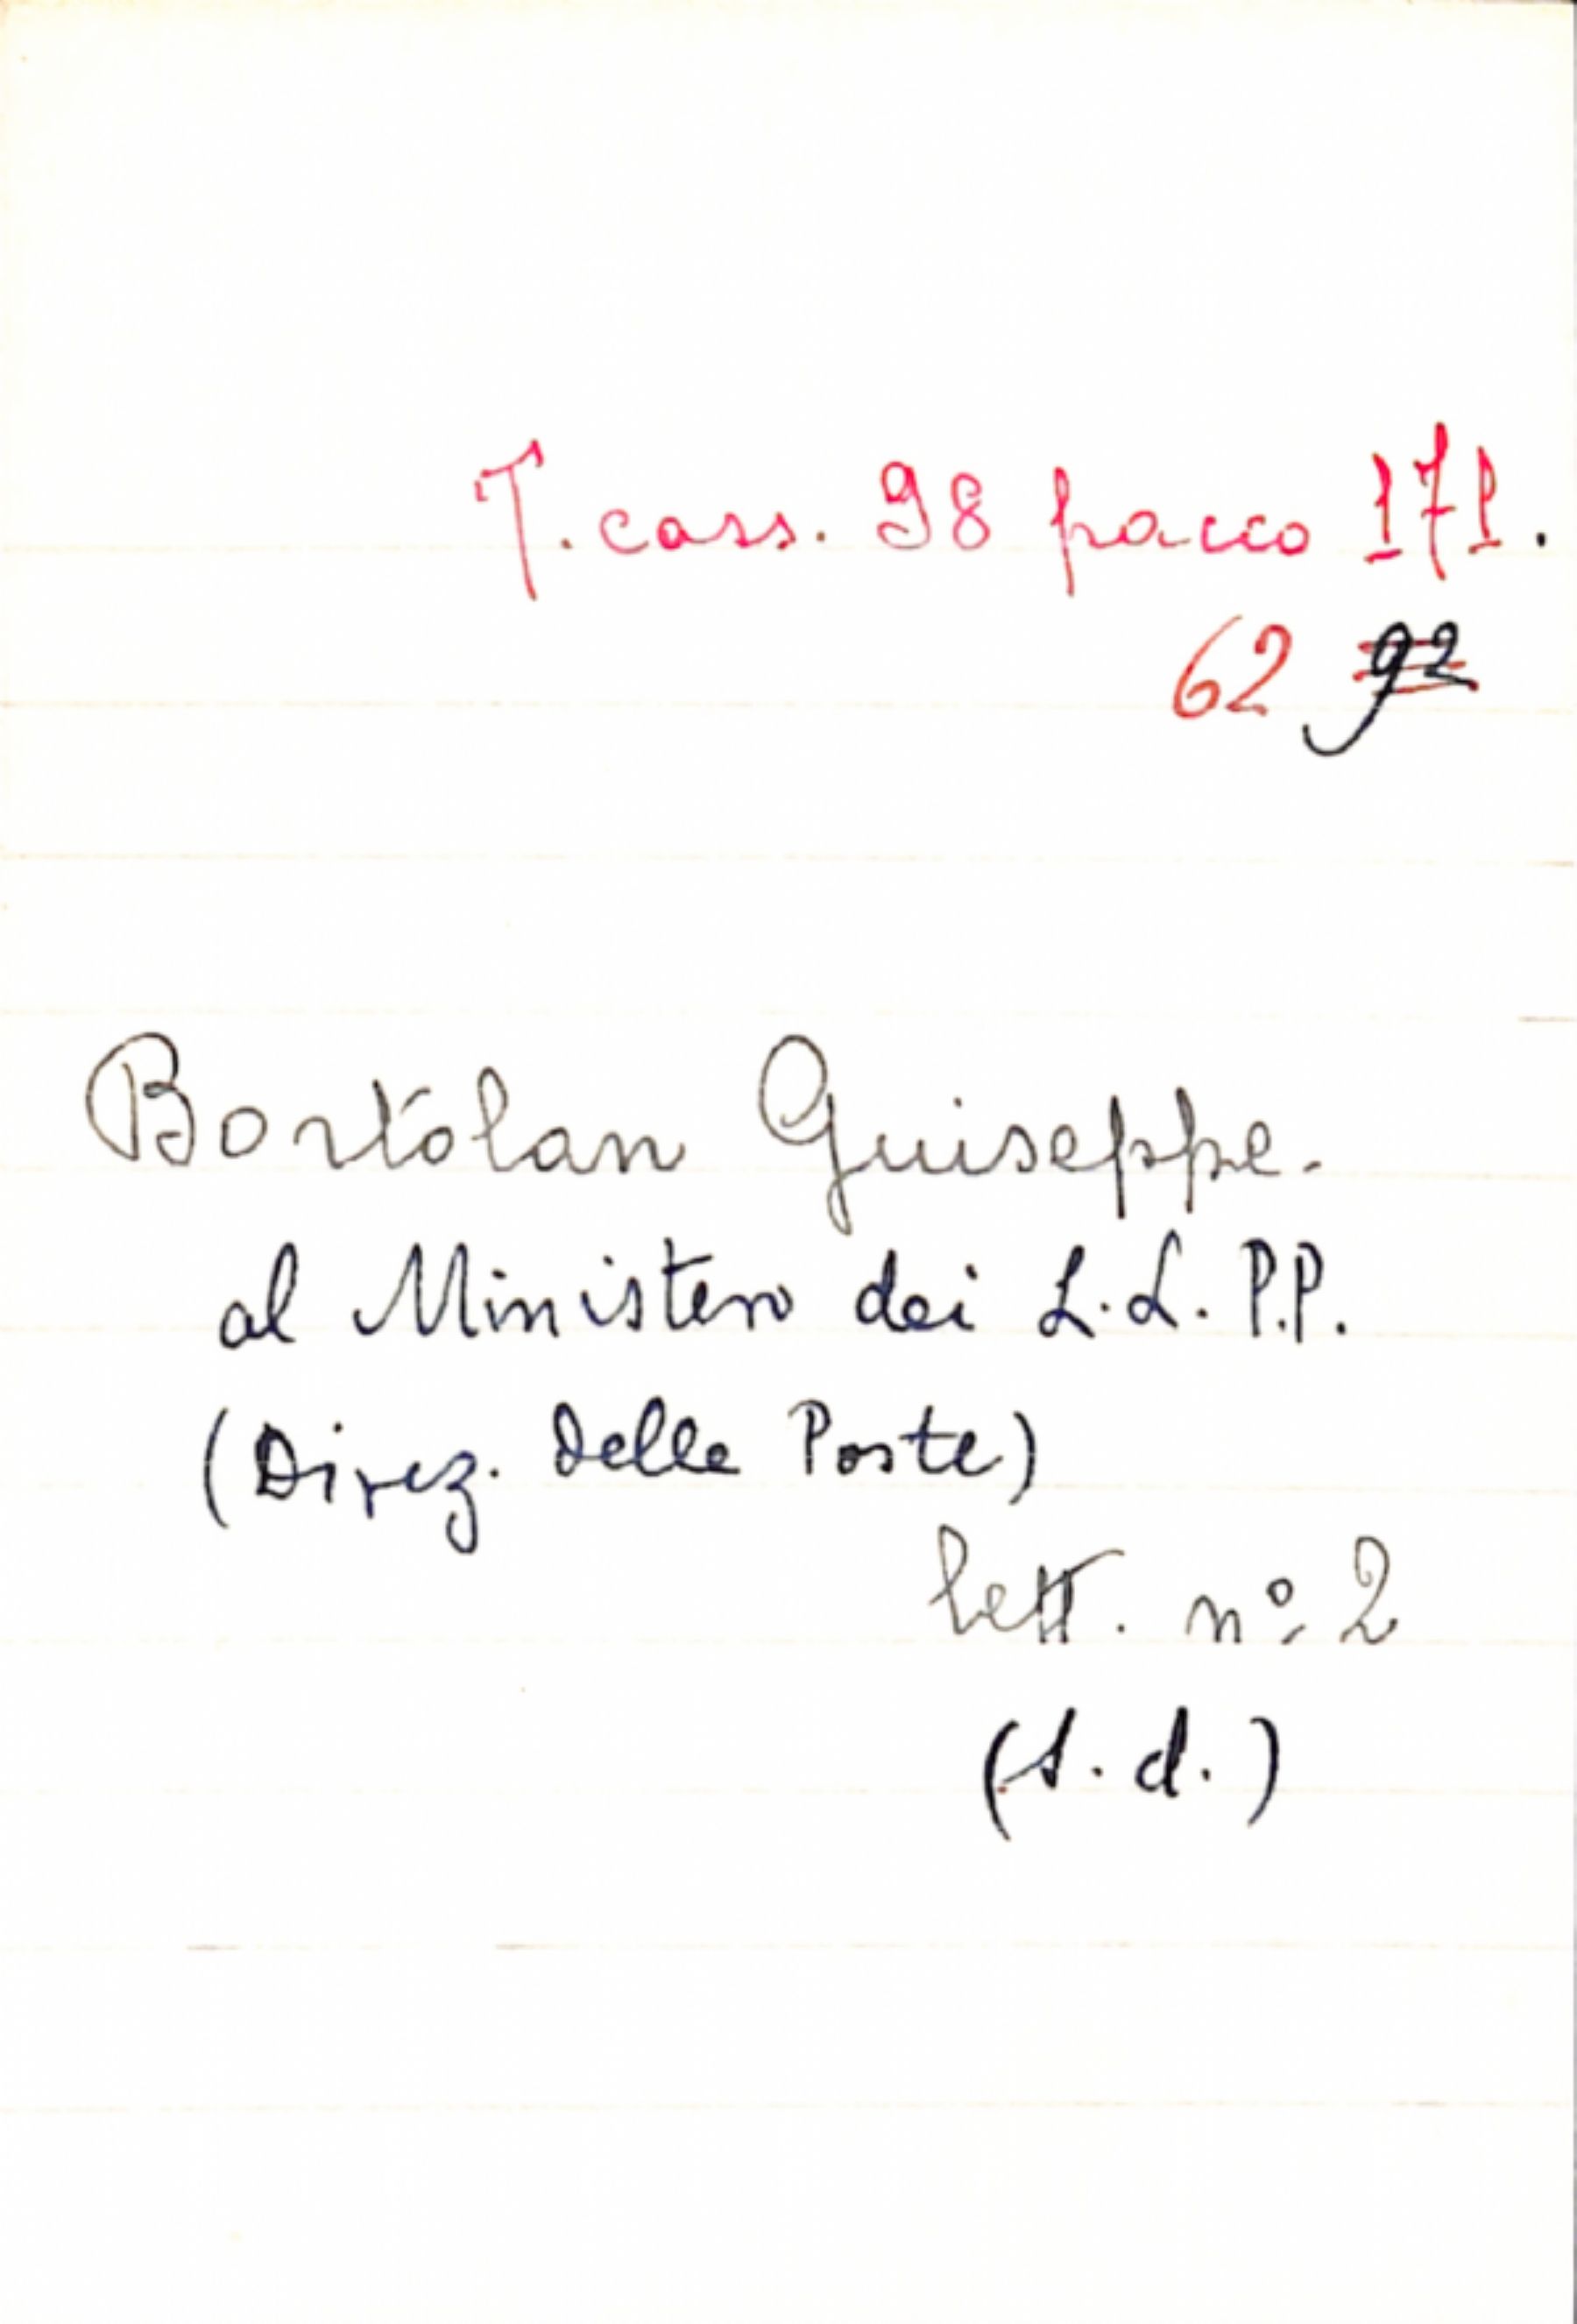 T. cass. 98 pacco 171.
62 92
Bortolan Guiseppe.
al Ministero dei L.L. P.P.
(Direz. delle Poste)
lett. nº 2
(s. d.)